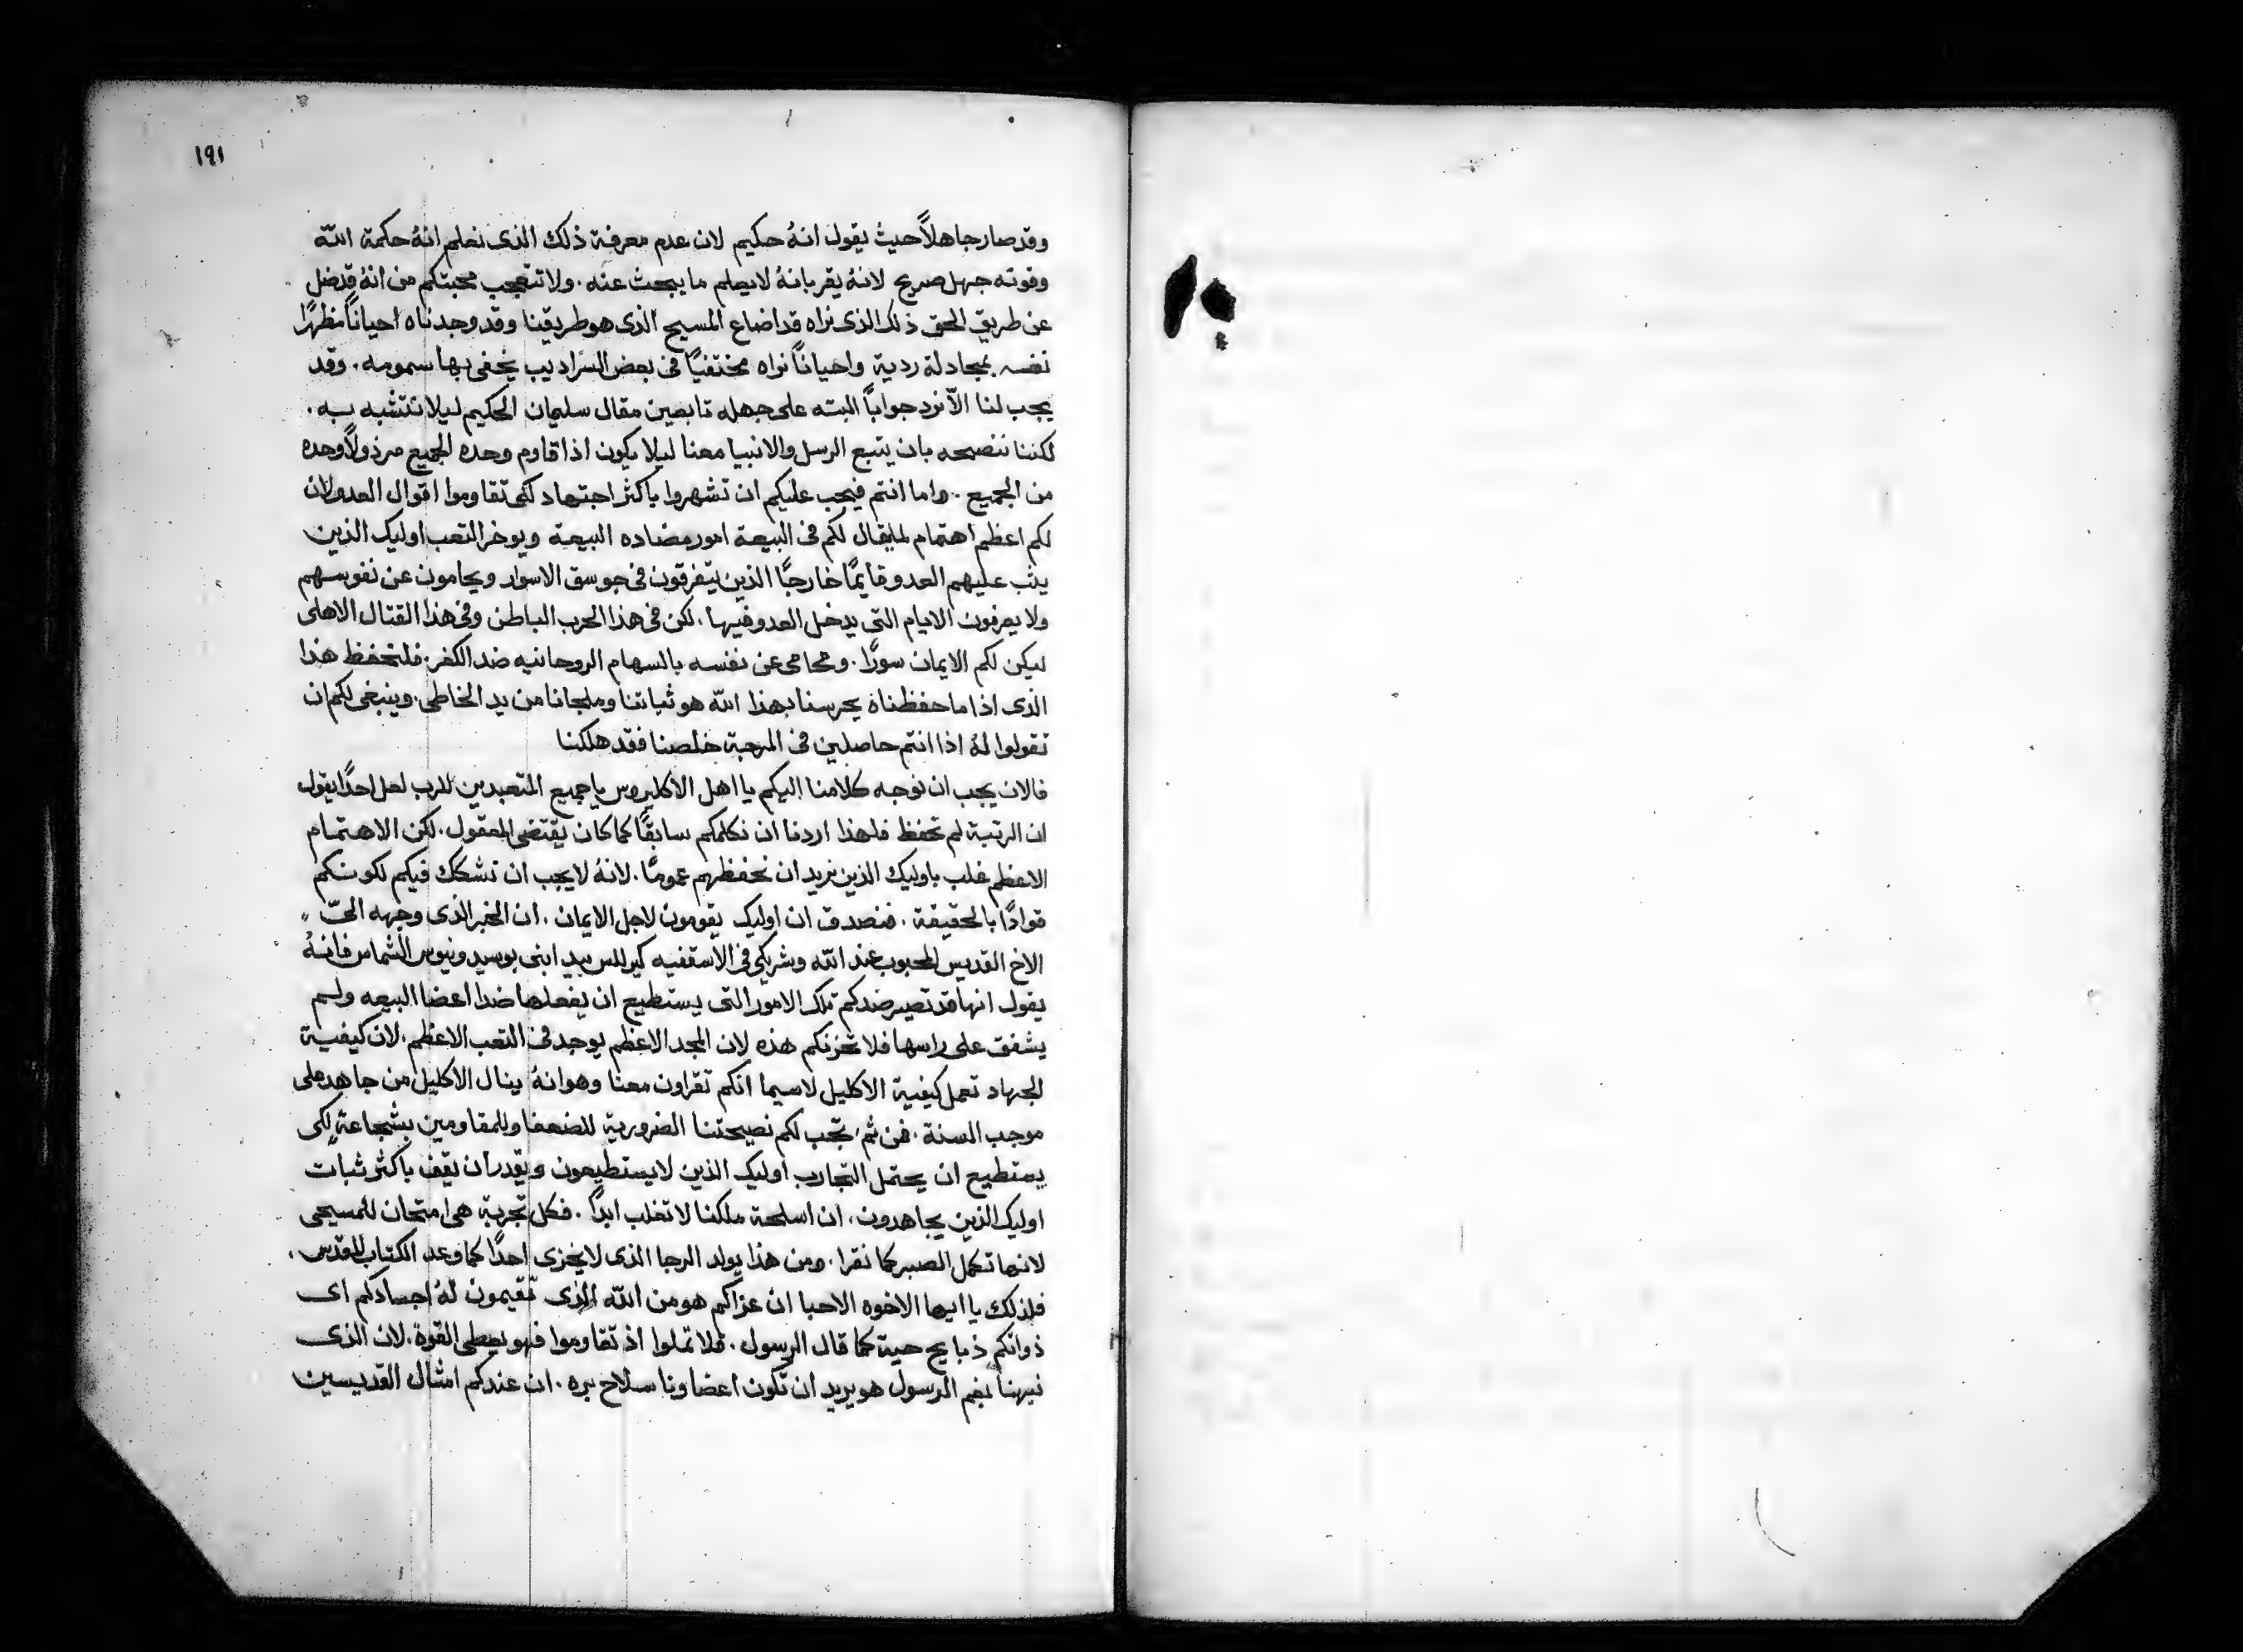 ١٩١
وقد صار جاهلاً حيث يقول انهُ حكيم لان عدم معرفة ذلك الذى نعلم انهُ حكمة الله
وقوته جهل صريح لانهُ يقر بانهُ لا يعلم ما يبحث عنه. ولا تتعجب محبتكم من انهُ قد ضل
عن طريق الحق ذلك الذى نراه قد اضاع المسيح الذى هو طريقنا وقد وجدناه احياناً مظهرًا
نفسه بمجادلة ردية واحياناً نراه مختفيًا فى بعض السراديب يخفى بها سمومه. وقد
يجب لنا الاّ نرد جواباً البته على جهله تابعين مقال سليمان الحكيم ليلا نتشبه به.
لكننا ننصحه بان يتبع الرسل والانبيا معنا ليلا يكون اذا قاوم وحده الجميع مرذولاً وحده
من الجميع. واما انتم فيجب عليكم ان تشهروا باكثر اجتهاد لكى تقاوموا اقوال العدو لان
لكم اعظم اهتمام لما يقال لكم فى البيعة امور مضاده البيعة ويوخر التعب اوليك الذين
يثب عليهم العدو قايمًا خارجًا الذين يتفرقون فى جوسق الاسوار ويحامون عن نفوسهم
ولا يعرفون الايام التى يدخل العدو فيها. لكن فى هذا الحرب الباطن وفى هذا القتال الاهلى
ليكن لكم الايمان سورًا. ومحامى عن نفسه بالسهام الروحانيه ضد الكفر. فلنحفظ هذا
الذى اذا ما حفظناه يحرسنا بهذا الله هو ثباتنا وملجانا من يد الخاطى. وينبغى لكم ان
تقولوا لهُ اذا انتم حاصلين فى المرحبة خلصنا فقد هلكنا
فالان يجب ان نوجه كلامنا اليكم يا اهل الاكليروس يا جميع المتعبدين للرب لعل احدًا يقول
ان الرتبة لم تحفظ فلهذا اردنا ان نكلمكم سابقًا كما كان يقتضى المعقول. لكن الاهتمام
الاعظم غلب باوليك الذين نريد ان نحفظهم عمومًا. لانهُ لا يجب ان نشكك فيكم لكونكم
قوادًا بالحقيقة. فنصدق ان اوليك يقومون لاجل الايمان. ان الخبر الذى وجهه اليّ
الاخ القديس المحبوب عند الله وشريكى فى الاسقفيه كيرللس بيد ابنى بوسيدونيوس الشماس فانهُ
يقول انها قد تصير ضدكم تلك الامور التى يستطيع ان يفعلها ضد اعضا البيعه ولم
يشفق على راسها فلا تحزنكم هذه لان المجد الاعظم يوجد فى التعب الاعظم. لان كيفية
الجهاد تعمل كيفية الاكليل لاسيما انكم تقراون معنا وهو انهُ ينال الاكليل من جاهد على
موجب السنة. فمن ثم تجب لكم نصيحتنا الضرورية للضعفا وللمقاومين بشجاعة لكى
يستطيع ان يحتمل التجارب اوليك الذين لا يستطيعون ويقدر ان يقف باكثر ثبات
اوليك الذين يجاهدون. ان اسلحة ملكنا لا تغلب ابداً. فكل تجربة هى امتحان للمسيحى
لانها تكمل الصبر كما نقرا. ومن هذا يولد الرجا الذى لا يخزى احدًا كما وعد الكتاب المقدس.
فلذلك يا ايها الاخوه الاحبا ان عزاكم هو من الله الذى تقيمون لهُ اجسادكم اى
ذواتكم ذبايح حية كما قال الرسول. فلا تملوا اذ تقاوموا فهو يعطى القوة. لان الذى
نبهنا بفم الرسول هو يريد ان تكون اعضاونا سلاح بره. ان عندكم امثال القديسين